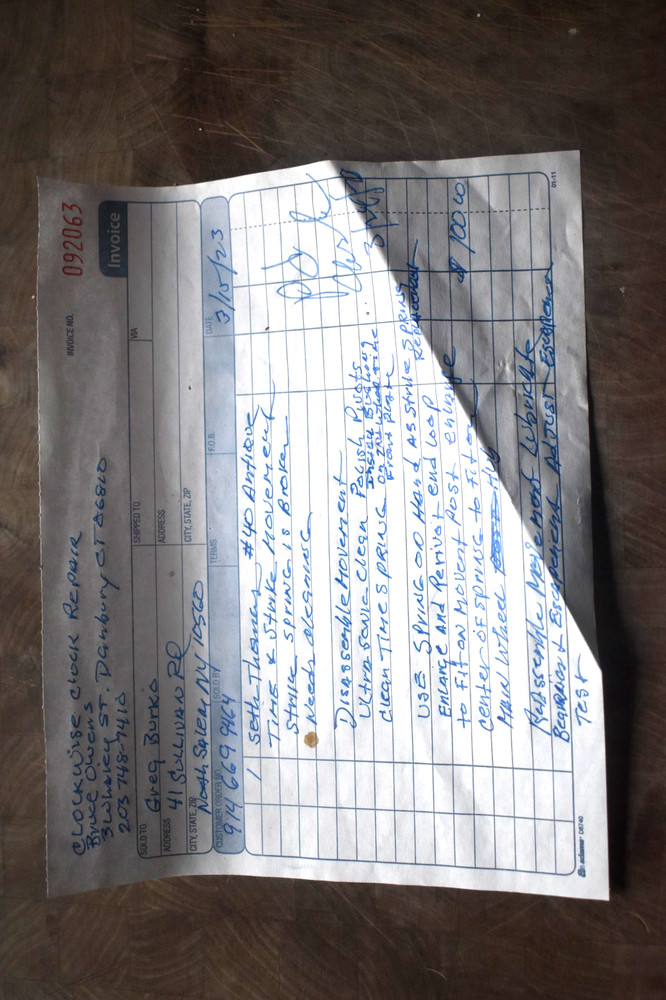 CLOCKWISE CLOCK REPAIR
Bruce Owens
3 Whaley ST. Danbury CT 06810
203 748-7410
INVOICE NO. 092063
Invoice
SOLD TO Greg Burko
SHIPPED TO
VIA
ADDRESS 41 SULLIVAN RD
ADDRESS
CITY, STATE, ZIP North Salem NY 10560
CITY, STATE, ZIP
CUSTOMER ORDER NO.
SOLD BY
TERMS
F.O.B.
DATE
914 669 9464
3/15/23
1 Seth Thomas #40 Antique
TIME & Strike Movement
Strike SPRING IS Broken
Needs cleaning
Disassemble Movement
Ultra Sonic Clean Polish Pivots
Inside Bushing
on 2nd Wheel Time
Front Plate
Clean TIME SPRING
USE SPRING ON Hand AS Strike SPRING
Enlarge and Rerivot end Loop
to Fit on Movent Post enlarge
Center OF SPRING to Fit on
Main Wheel
$ 100 00
ReAssemble Movement Lubricate
Escapement Adjust
TEST
adams D8740
01-11